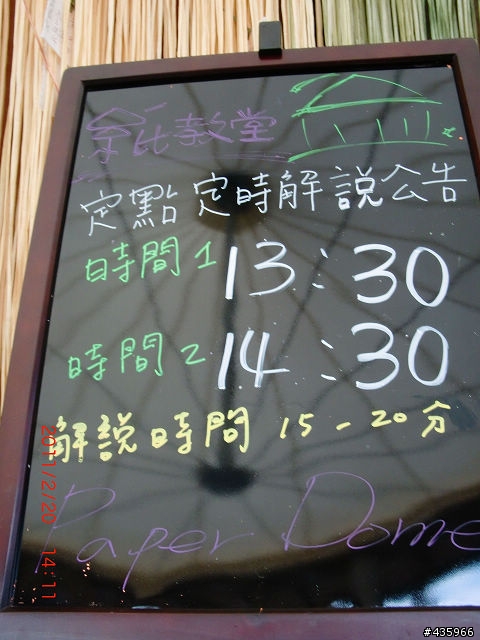 紙教堂
定點定時解說公告
時間1 13:30
時間2 14:30
解說時間 15-20分
Paper Dome
2011/2/20 14:11
#435966